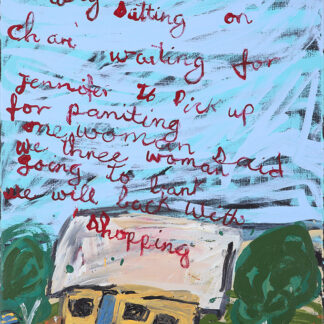 sitting on
chair waiting for
Jennifer to pick up
for paniting
one woman said
we three woman
going to hant
we will back with
shopping